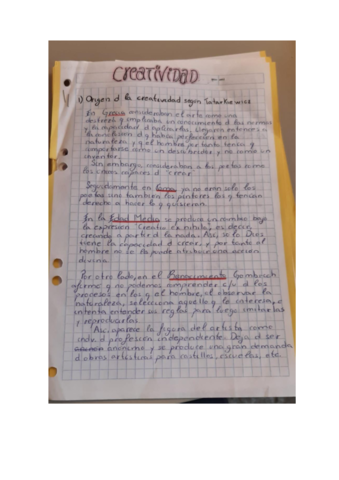 CREATIVIDAD
1) Origen d la creatividad según Tatarkiewicz
En Grecia consideraban el arte como una
destreza y implicaba un conocimiento d las normas
y la capacidad d aplicarlas. Llegaron entonces a
la conclusión d q había perfección en la
naturaleza y q el hombre por tanto tenía q
comportarse como un descubridor y no como un
inventor.
Sin embargo, consideraban a los poetas como
los únicos capaces d crear.
Seguidamente en ya no eran solo los
poetas sino también los pintores los q tenían
derecho a hacer lo q quisieran.
En la Edad Media se produce un cambio bajo
la expresión "Creatio ex nihilo", es decir,
creando a partir d la nada. Así, solo Dios
tiene la capacidad d crear, y por tanto al
hombre no se le puede
divina.
Por otro lado, en el Renacimiento Gombrich
afirma q no podemos comprender c/u d los
procesos en los q el hombre, al observar la
naturaleza, selecciona aquello q le interesa, e
intenta entender sus reglas para luego imitarlas
y reproducirlas.
Así, aparece la figura del artista como
d profesión independiente. Deja d ser
anónimo y se produce una gran demanda
d obras artísticas para castillos, escuelas, etc.